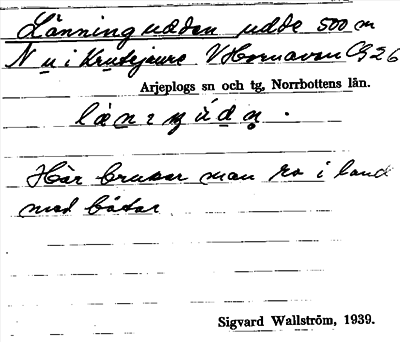 Länningudden udde 500 m
N u i Krutsjaure V Hornavan C9 26
Arjeplogs sn och tg, Norrbottens län.
Här brukar man ro i land
med båtar
Sigvard Wallström, 1939.